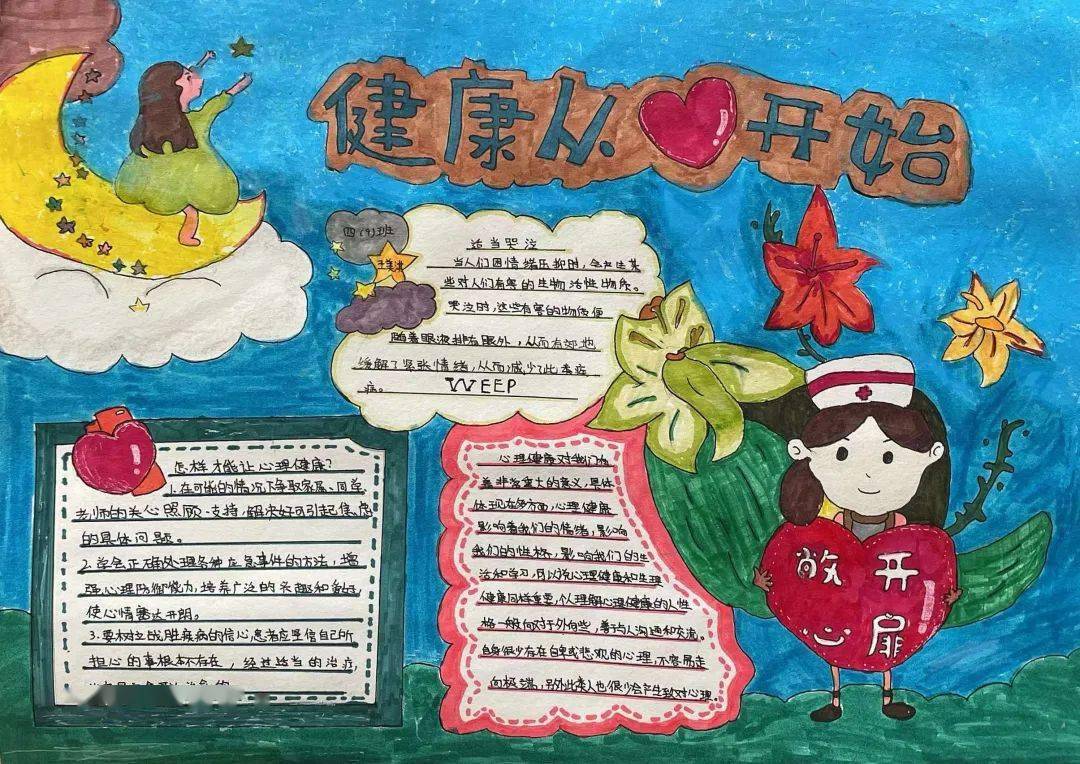 健康从开始
四(9)班
适当哭泣
当人们因情绪压抑时，会产生某
些对人们有害的生物活性物质。
哭泣时，这些有害的物质便
随着眼液排在眼外，从而有效地
缓解了紧张情绪，从而减少了此类疾
病。
WEEP
怎样才能让心理健康？
1.在可能的情况下争取家属、同学
老师的关心照顾、支持，解决好可引起焦虑
的具体问题。
2.学会正确处理各种应急事件的方法，增
强心理防御能力，培养广泛的兴趣和爱好，
使心情豁达开朗。
3.要树立战胜疾病的信心，患者应坚信自己所
担心的事根本不存在，经过适当的治疗，
心理健康对我们有
着非常重大的意义，具体
体现在多方面，心理健康
影响着我们的情绪，影响
我们的性格，影响我们的生
活和学习，可以说心理健康和生理
健康同样重要，个人理解心理健康的人性
格一般向对于外向些，善于与人沟通和交流。
自身很少存在自卑或悲观的心理，不容易走
向极端，另外此类人也很少会产生敌对心理。
敞开
心扉